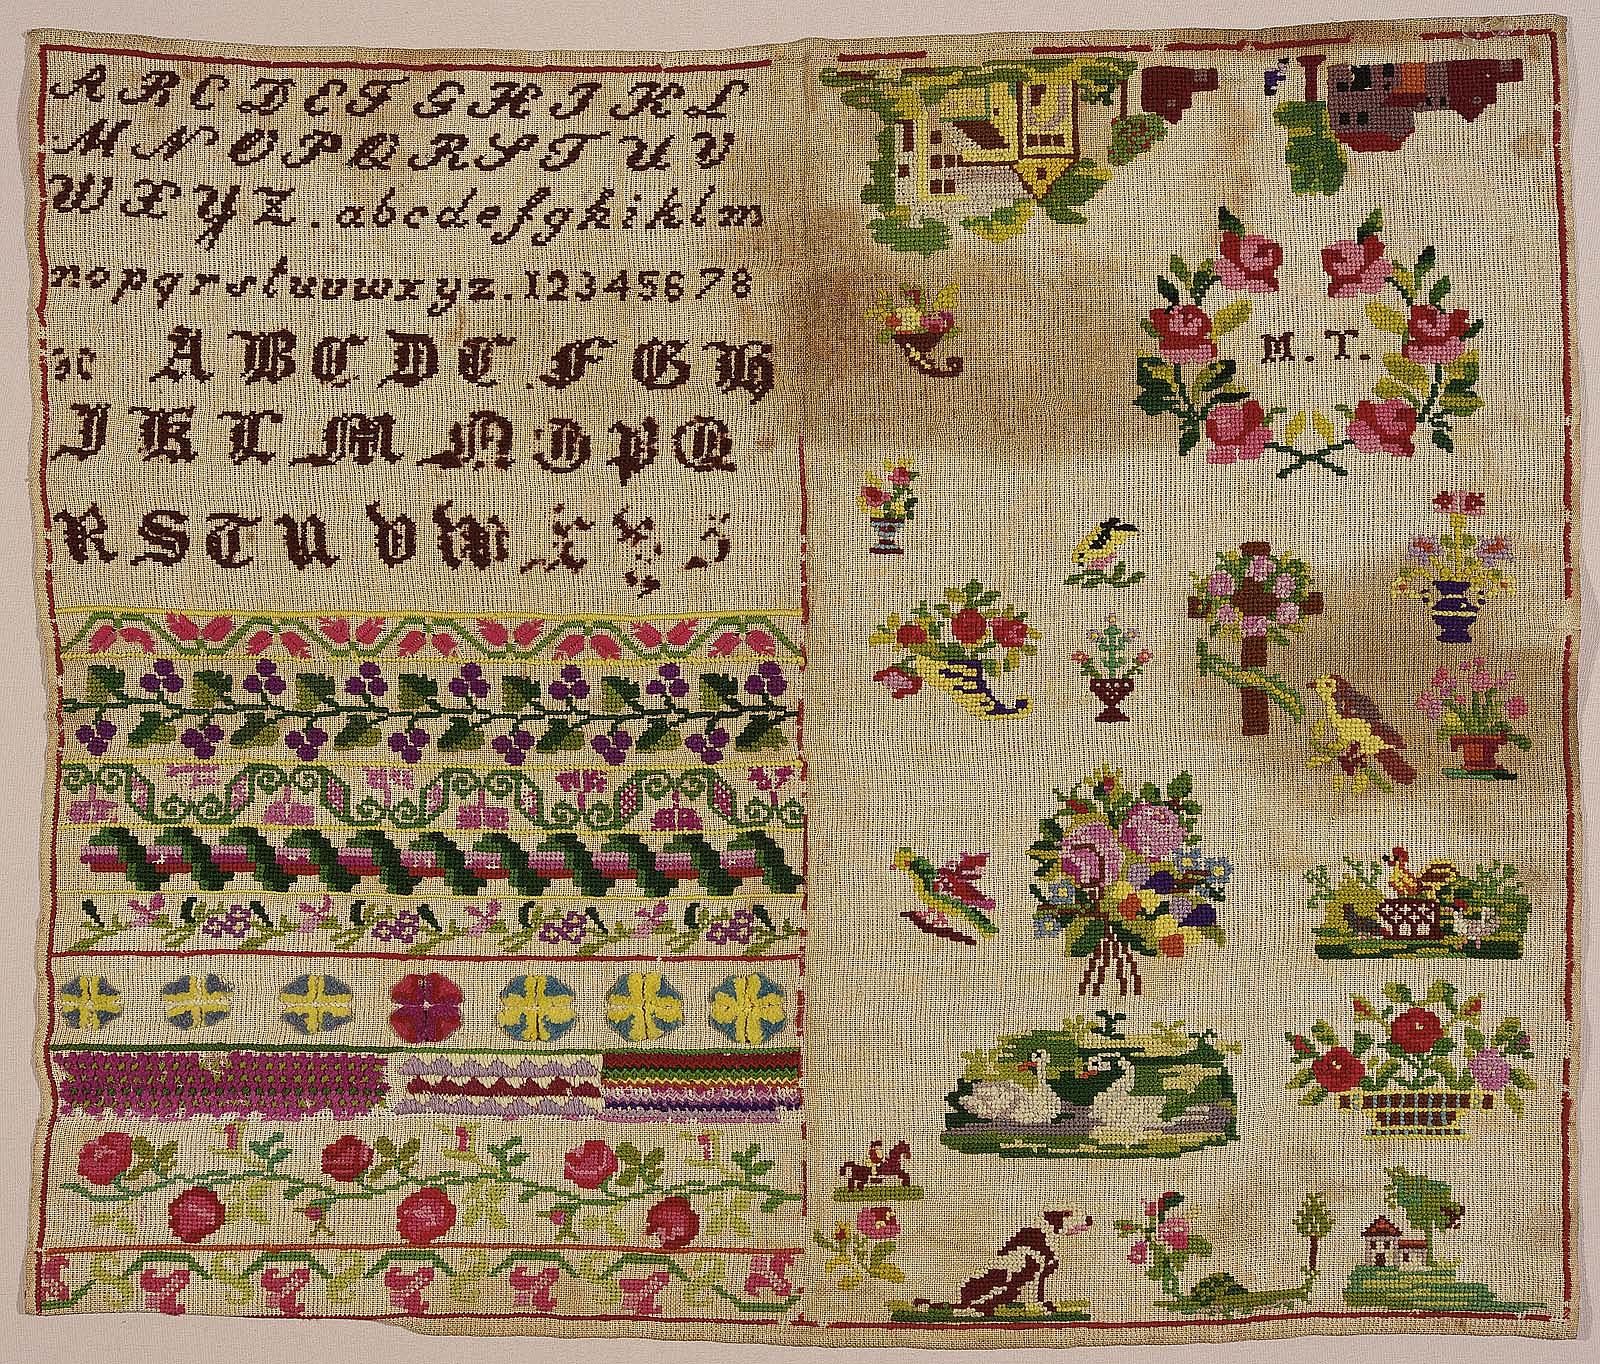 A B C D E F G H I K L
M N O P Q R S T U V
W X Y Z . a b c d e f g h i k l m
n o p q r s t u v w x y z . 1 2 3 4 5 6 7 8
A B C D E F G H
I K L M N O P Q
R S T U V W X Y Z
M. T.